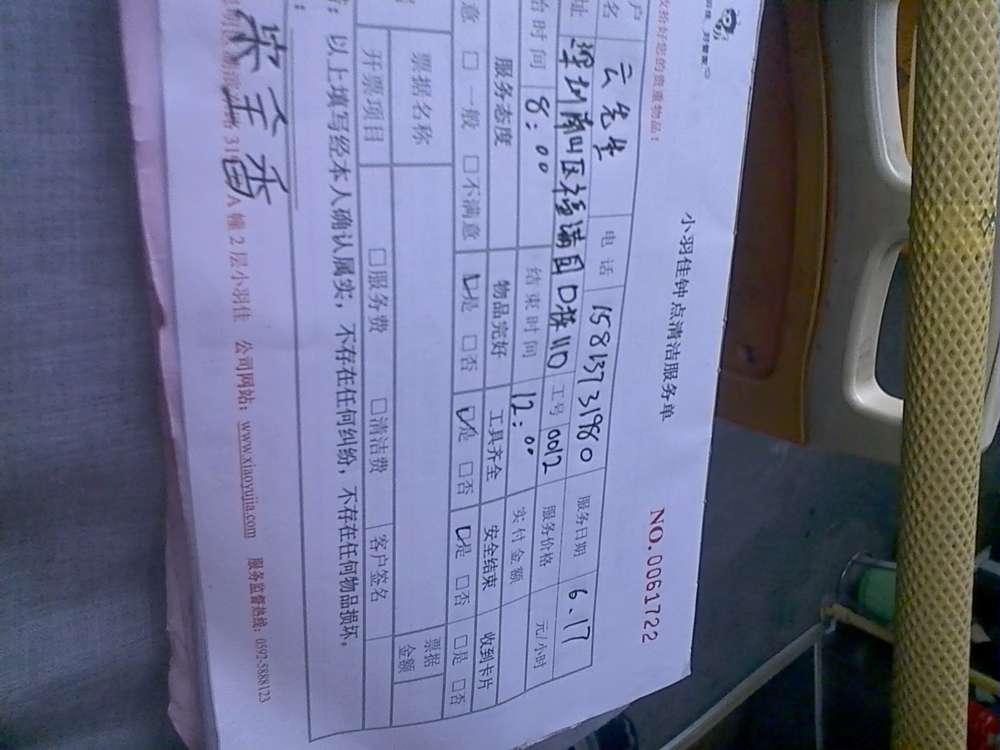 收拾好您的贵重物品!
小羽佳钟点清洁服务单
NO.0061722
户名 云先生 电话 15813731980 服务日期 6.17
址 深圳南山区 D栋110 工号 0012 服务价格 元/小时
始时间 8:00 结束时间 12:00 实付金额
服务态度 物品完好 工具齐全 安全结束 收到卡片
意 □一般 □不满意 □是 □否 □是 □否 □是 □否 □是 □否
票据名称 票据金额
开票项目 □服务费 □清洁费 客户签名
:以上填写经本人确认属实,不存在任何纠纷,不存在任何物品损坏,
A幢2层小羽佳 公司网站:www.xiaoyujia.com 服务监督热线:0592-5888123